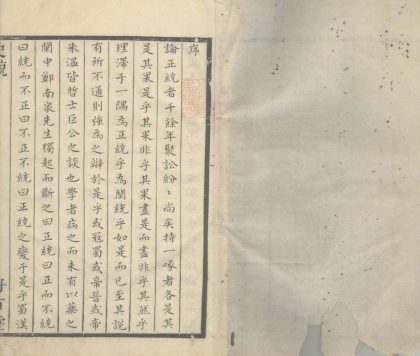 序
論正統者千餘年聚訟紛〻尚矣持一喙者各是其
是其果是乎其果非乎其果盡是而盡非乎其然乎
理滯于一隅為正統乎為閏統乎如是而已至其說
有所不通則強為之辯於是乎或冦蜀或帝晉或帝
朱溫皆哲士巨公之談也學者病之而未有以藥之
閩中鄭南泉先生獨起而斷之曰正統曰正而不統
曰統而不正曰不正不統曰正統之變于是乎蜀漢